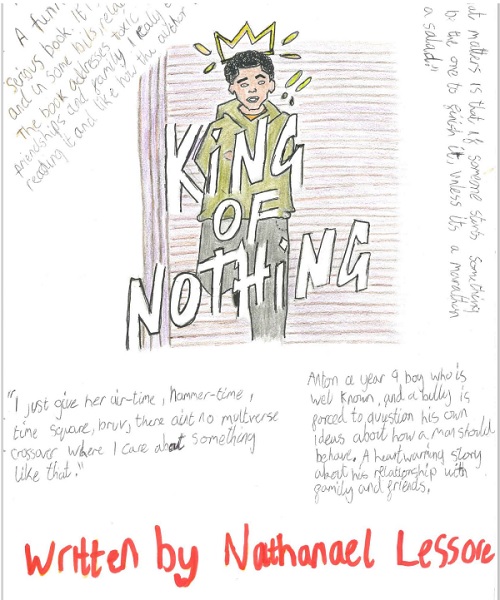 A funn
serious book. It
and in some bits, rela
The book addresses toxic
friendships and family. I realy e
reading it and like how the author
at matters is that if someone starts something
be the one to finish it, unless its a marathon
a salad."
KiNG
OF
NOTHiNG
"I just give her air-time, hammer-time,
time square, bruv, there aint no multverse
crossover where I care about something
like that."
Anton a year 9 boy who is
well known, and a bully is
forced to question his own
ideas about how a man should
behave. A heartwarming story
about his relationship with
family and friends.
written by Nathanael Lessore